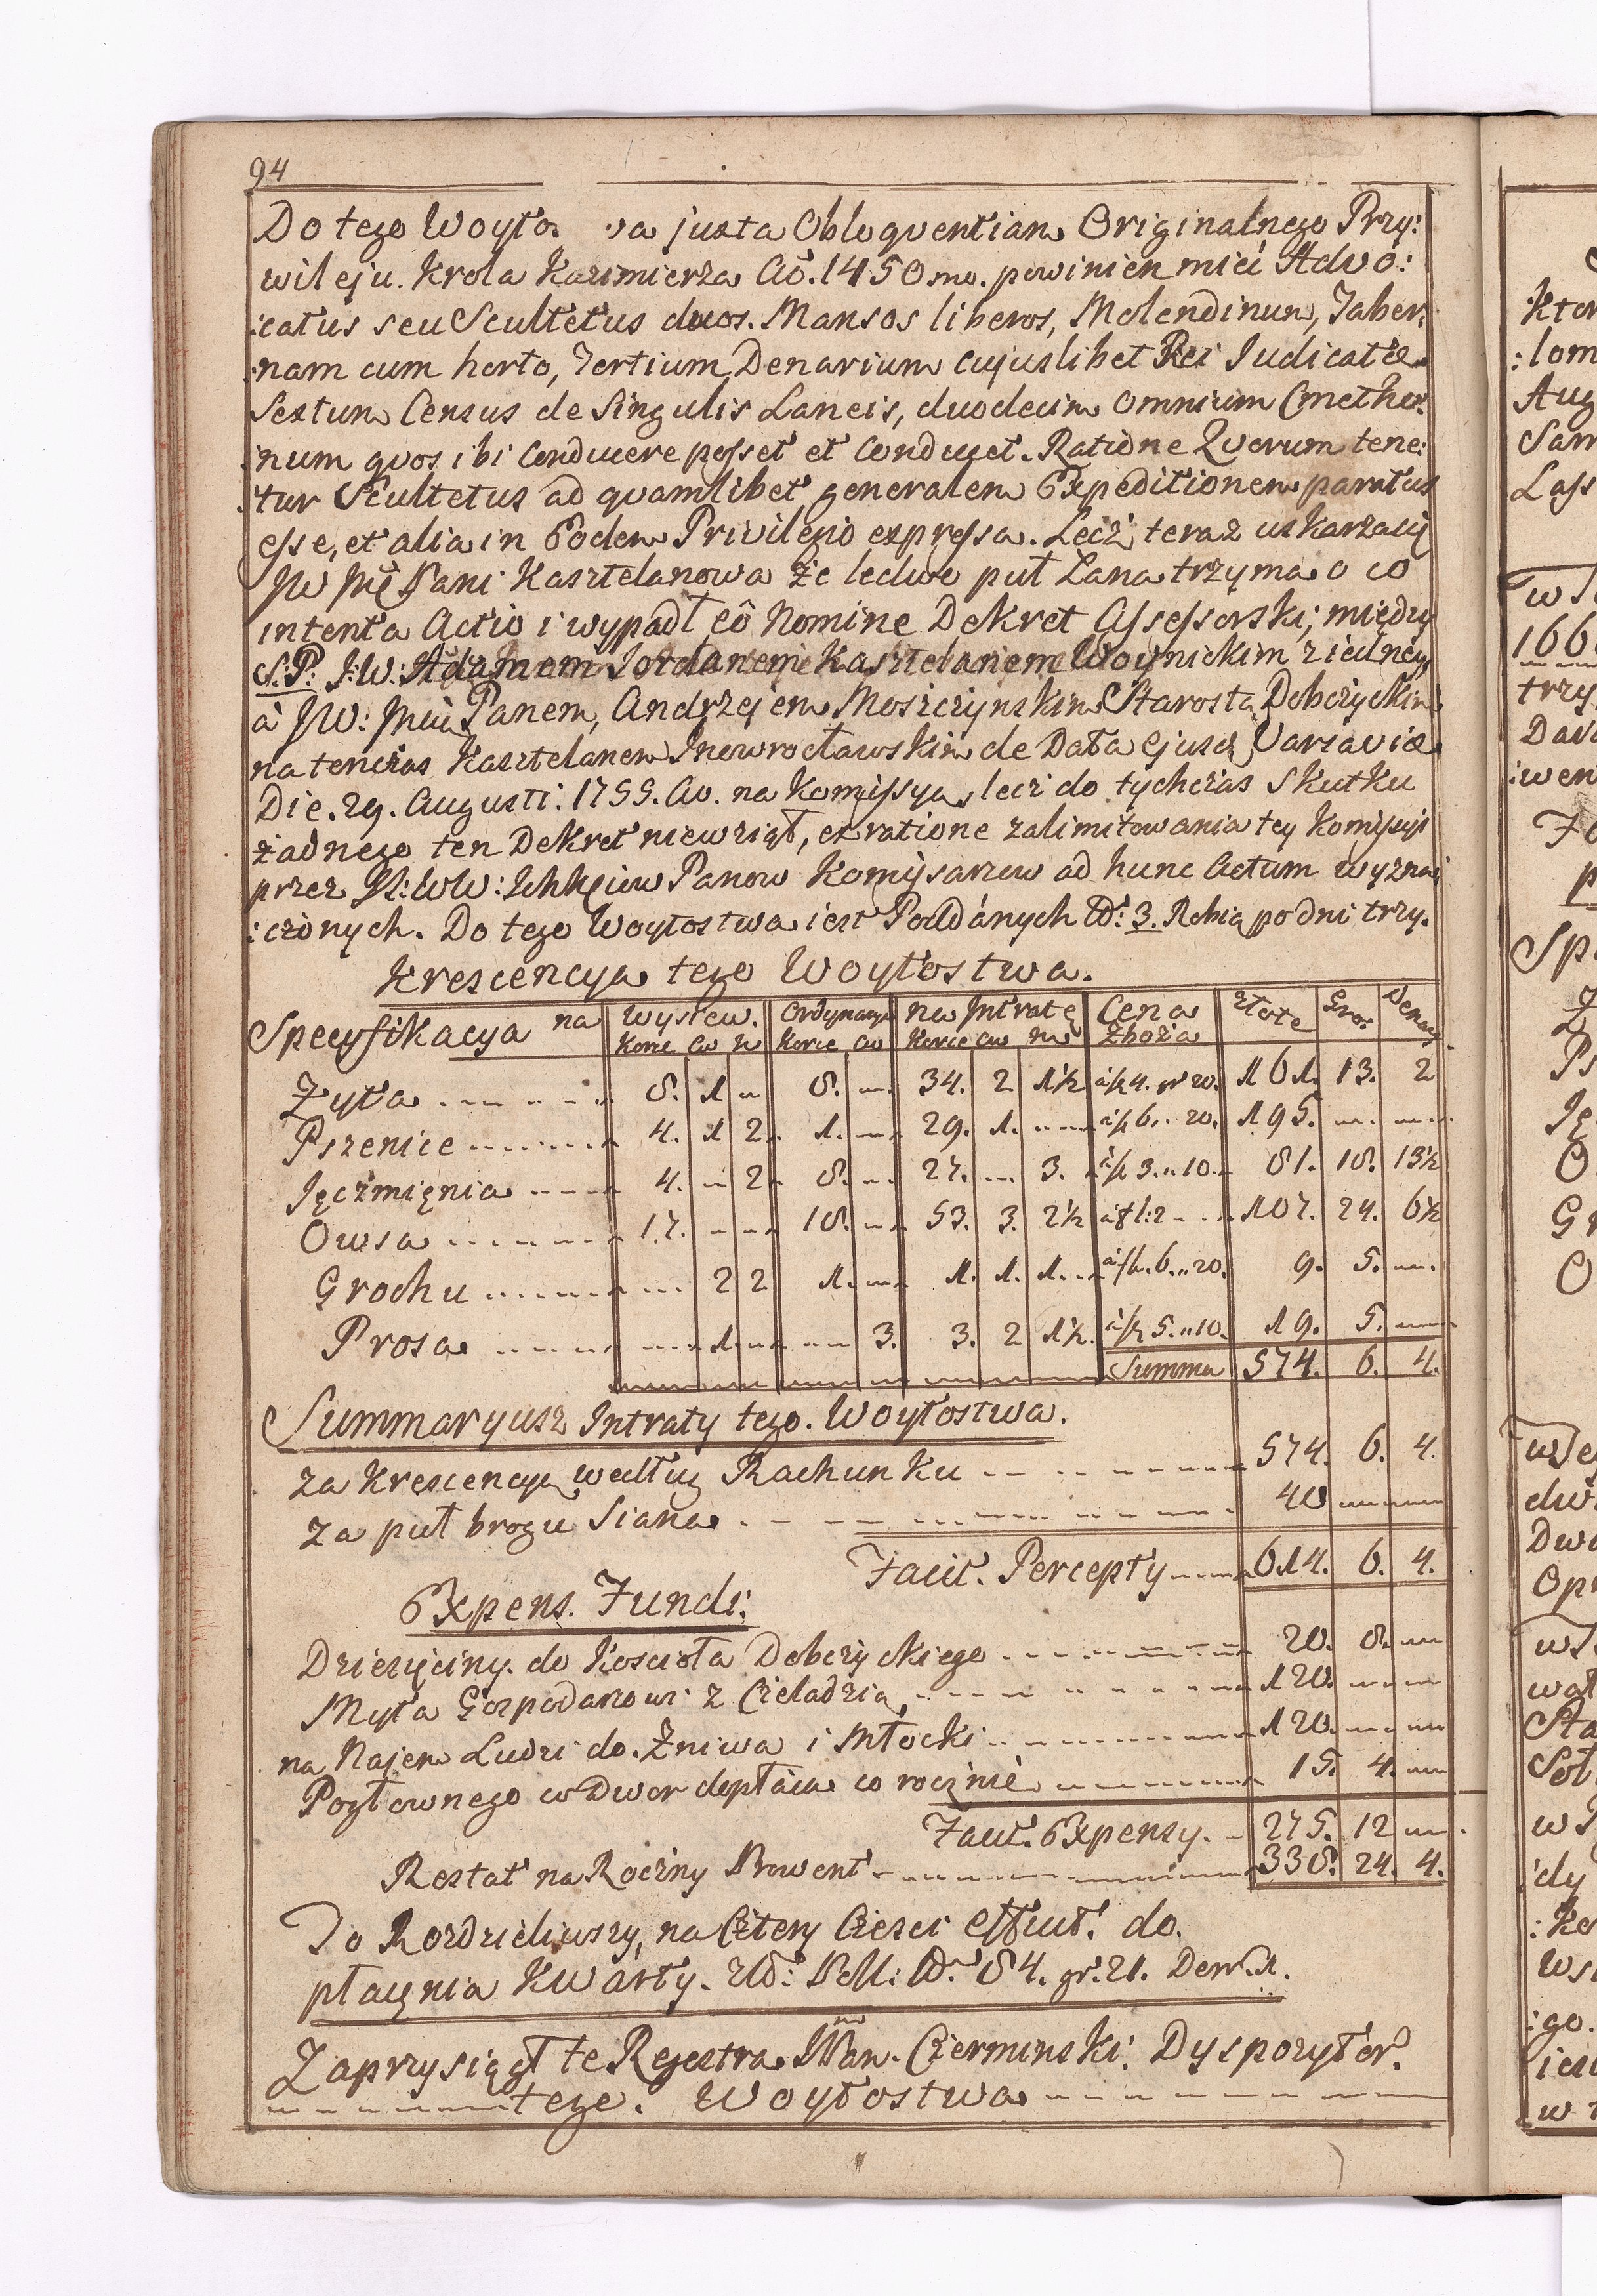 94
Do tego Woyto wa juxta Obloquentiam Originalnego Przy:
wileju. Krola Kazimierza Ao. 1450mo. powinien mieć Advo:
:catus seu Scultetus duos. Mansos liberos, Molendinum, Taber:
:nam cum horto, Tertium Denarium cujuslibet Rei Iudicatæ
Sextum Census de Singulis Laneis, duodecim omnium Cmetho:
:num quos ibi Conducere posset et Conducet. Ratione Quorum tene:
:tur Scultetus ad quamlibet generalem Expeditionem paratus
esse, et alia in Eodem Privilegio expressa. Lecz teraz uskarza się
JW Pani Kasztelanowa że ledwo puł Łana trzyma o co
intenta Actio i wypadł eô Nomine Dekret Assessorski; między
S:P: J:W: Adamem Jordanem Kasztelanem Woynickim z iedney
à JW: Panem, Andrzejem Moszczynskim Starostą Dobczyckim
na tenczas Kasztelanem Inowrocławskim de Data ejusd Varsaviæ
Die. 29. Augusti: 1755. Ao. na Komissyą, lecz do tychczas Skutku
żadnego ten Dekret niewziął, ex ratione zalimitowania tey Komissyi
przez Panow Komisarzow ad hunc Actum wyzna:
:czonych. Do tego Woytostwa iest Poddánych No: 3. Robią po dni trzy.
Krescencya tego Woytostwa.
Specyfikacya na Wysiew. Ordynaryą na Intratę Cena Złote Gros: Denary
Korce Ćw M Korce Ćw Korce Ćw M Zboża
Żyta 8. 1 8. 34. 2 1½ à f 4. gr 20. 161. 13. 2
Pszenice 4. 1 2 1. 29. 1. à f 6. 20. 195.
Jęczmięnia 4. 2 8. 27. 3. à f 3. 10. 81. 18. 13½
Owsa 17. 18. 53. 3. 2½ à f 2 107. 24. 6½
Grochu 2 2 1. 1. 1. 1. à f 6. 20. 9. 5.
Prosa 1. 3. 3. 2 1½. à f 5. 10. 19. 5.
Summa 574. 6. 4.
Summaryusz Intraty tego. Woytostwa.
za Krescencyą według Rachunku 574. 6. 4.
za puł brogu Siana 40
Facit. Percepty 614. 6. 4.
Expens. Fundi:
Dziesięciny. do Koscioła Dobczyckiego 20. 8.
Myta Gospodarzowi z Czeladzią 120.
na Najem Ludzi do. Żniwa i Młocki 120.
Pogłownego w Dwor dopłáca co rocznie 15. 4.
Facit. Expensy. 275. 12
Restat na Roczny Prowent 338. 24. 4.
To Rozdzieliwszy, na Cztery Części Efficit. do.
płacęnia Kwarty. No: 84. gr. 21. Den. 1.
Zaprzysiągł te Regestra Jan. Czerminski. Dyspozytor.
tego. Woytostwa